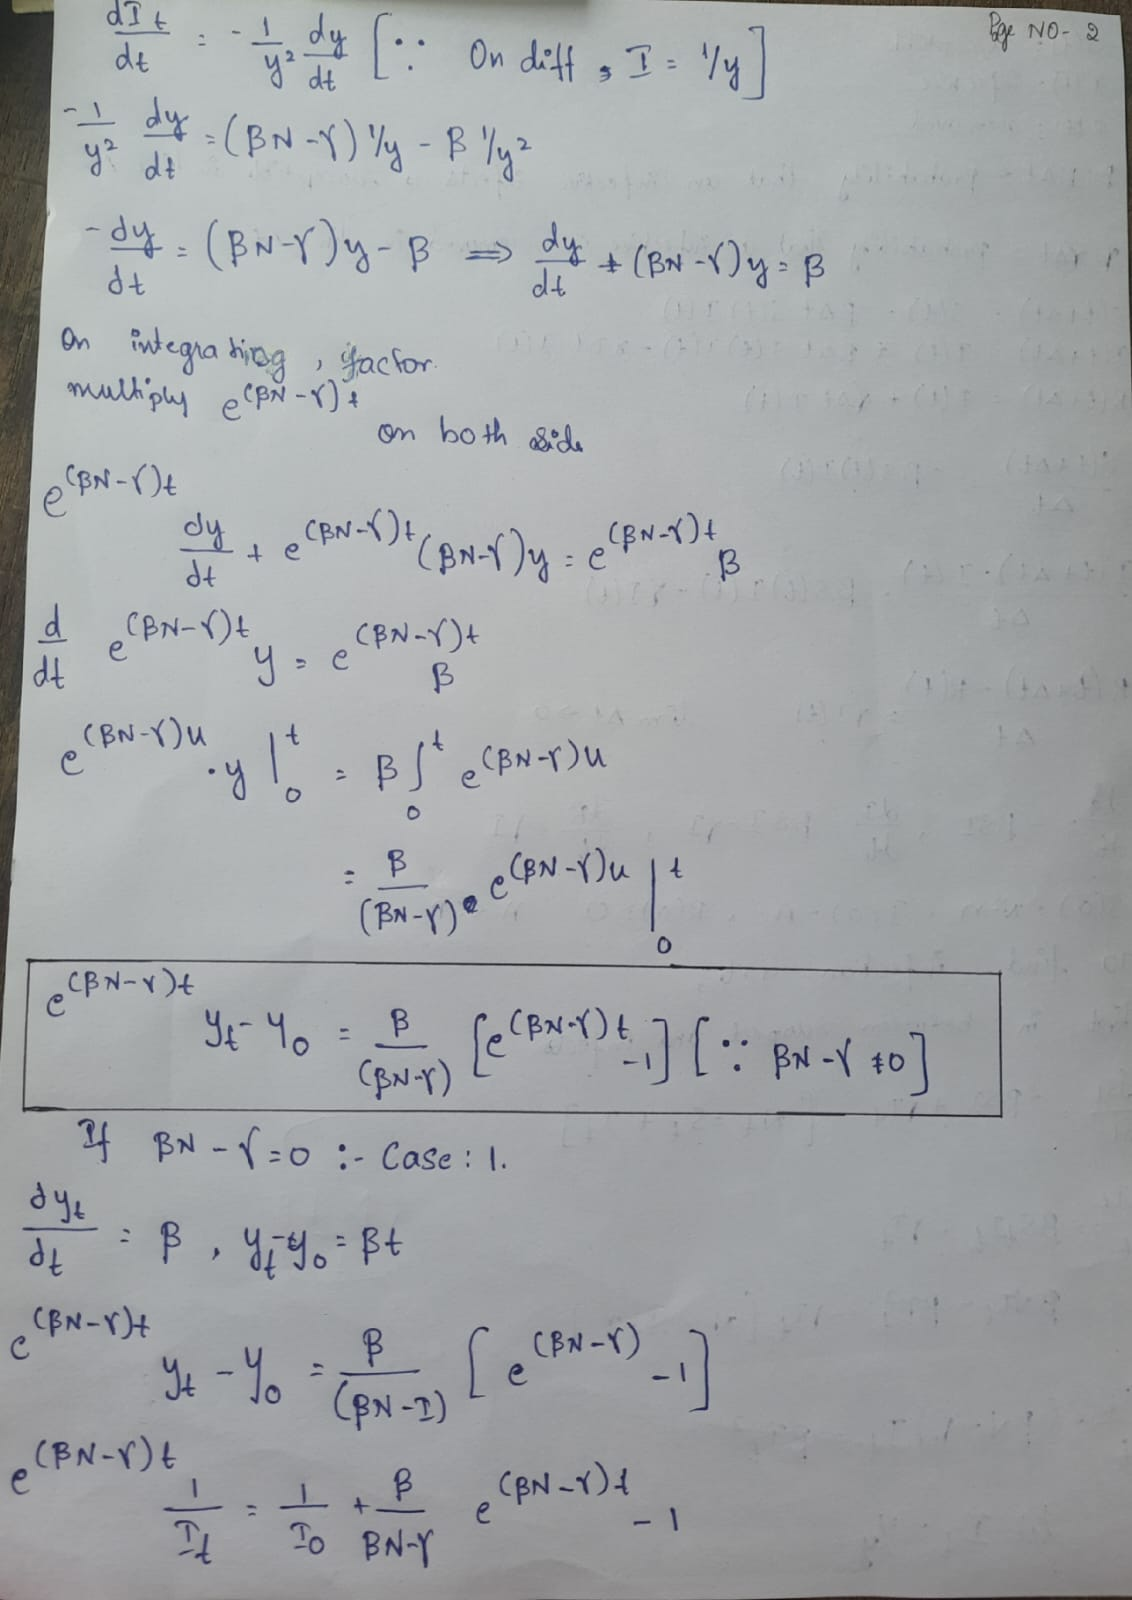 Pge NO- 2
dIt/dt = - 1/y² dy/dt [∵ On diff, I = 1/y]
-1/y² dy/dt = (βN-γ) 1/y - β 1/y²
-dy/dt = (βN-γ)y - β ⟹ dy/dt + (βN-γ)y = β
On integrating, factor.
multiply e^(βN-γ)t
on both side
e^(βN-γ)t dy/dt + e^(βN-γ)t (βN-γ)y = e^(βN-γ)t β
d/dt e^(βN-γ)t y = e^(βN-γ)t β
e^(βN-γ)u · y |₀^t = β ∫₀^t e^(βN-γ)u
= β/(βN-γ) · e^(βN-γ)u |₀^t
e^(βN-γ)t yt - y0 = β/(βN-γ) [e^(βN-γ)t -1] [∵ βN-γ ≠0]
If βN-γ=0 :- Case: 1.
dyt/dt = β, yt-y0 = βt
e^(βN-γ)t yt - y0 = β/(βN-I) [e^(βN-γ) -1]
e^(βN-γ)t 1/It = 1/I0 + β/βN-γ e^(βN-γ)t -1